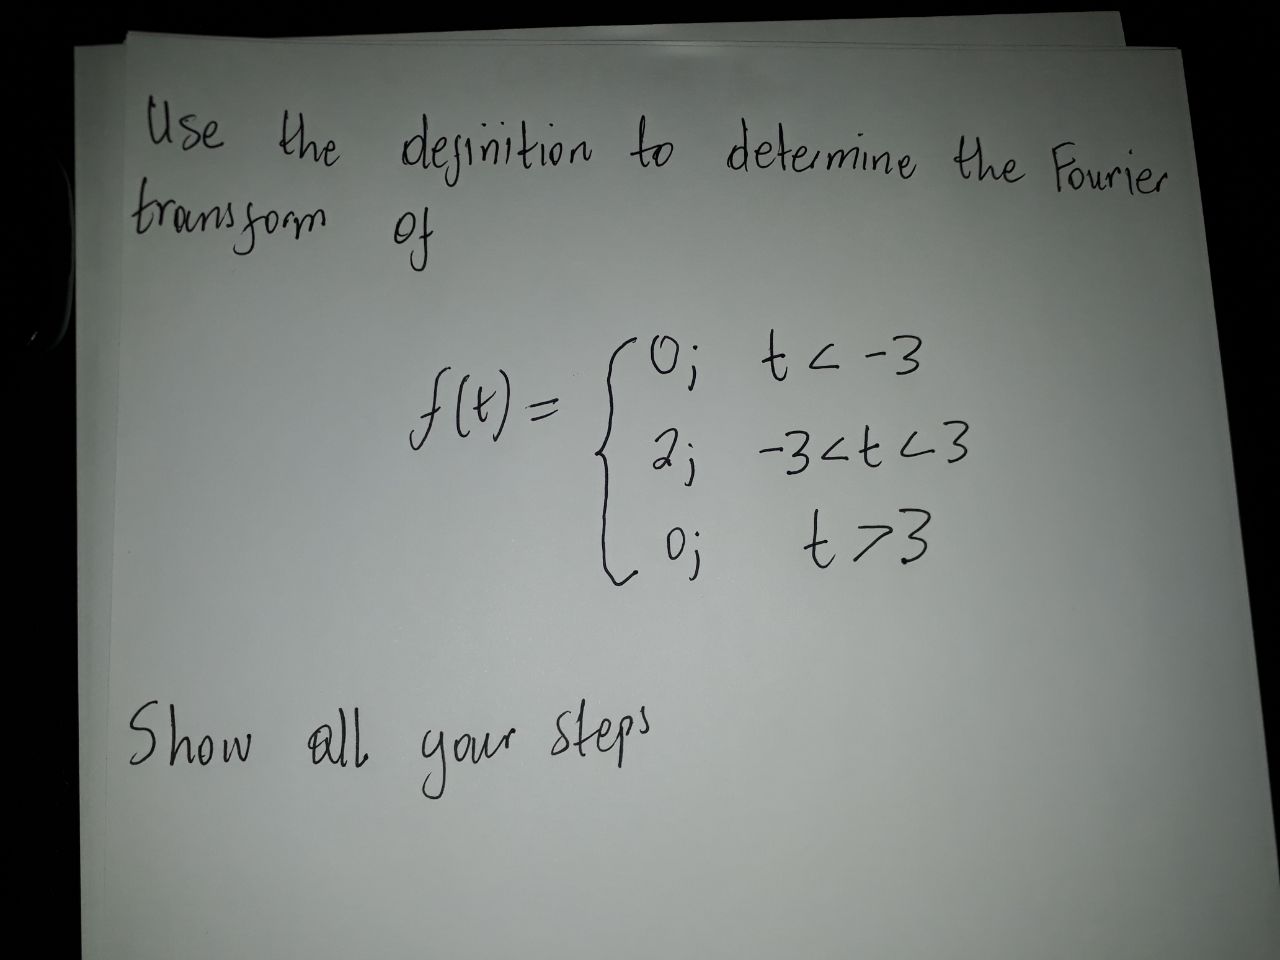 Use the definition to determine the Fourier
transform of
f(t) = { 0; t < -3
2; -3 < t < 3
0; t > 3
Show all your steps